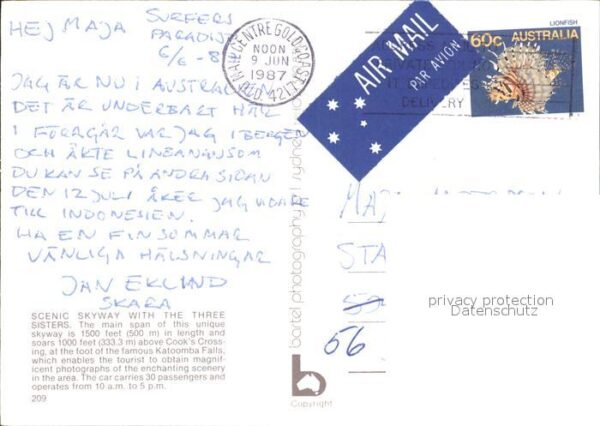 HEJ MAJA
SURFERS
PARADISE
6/6-8
JAG ÄR NU I AUSTRAL
DET ÄR UNDERBART HÄR
I FÖRRGÅR VAR JAG I BERGEN
OCH ÅKTE LINBANAN SOM
DU KAN SE PÅ ANDRA SIDAN
DEN 12 JULI ÅKER JAG VIDARE
TILL INDONESIEN.
HA EN FIN SOMMAR
VÄNLIGA HÄLSNINGAR
JAN EKLUND
SKARA
SCENIC SKYWAY WITH THE THREE
SISTERS. The main span of this unique
skyway is 1500 feet (500 m) in length and
soars 1000 feet (333.3 m) above Cook's Cross-
ing, at the foot of the famous Katoomba Falls,
which enables the tourist to obtain magnif-
icent photographs of the enchanting scenery
in the area. The car carries 30 passengers and
operates from 10 a.m. to 5 p.m.
209
MAIL CENTRE GOLD COAST
NOON
9 JUN
1987
QLD 4217
AIR MAIL
PAR AVION
LIONFISH
60c AUSTRALIA
DELIVERY
bartel photography
sydney
b
Copyright
MAJ
STA
56
privacy protection
Datenschutz